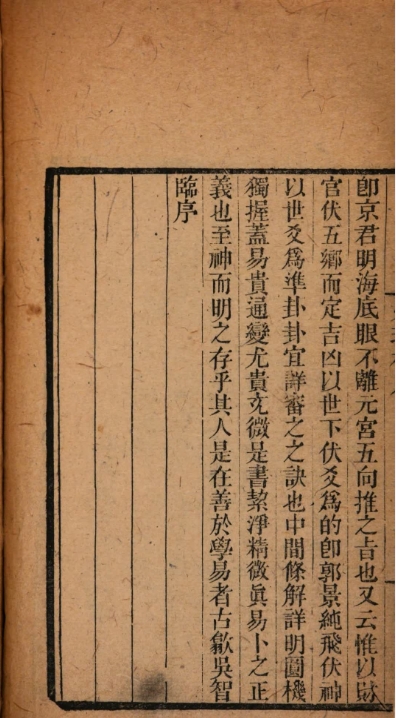 卽京君明海底眼不離元宮五向推之㫖也又云惟以財
官伏五鄉而定吉凶以世下伏爻爲的卽郭景純飛伏神
以世爻爲準卦卦宜詳審之之訣也中間條解詳明圓機
獨握蓋易貴通變尤貴玄微是書絜淨精微眞易卜之正
義也至神而明之存乎其人是在善於學易者古歙吳智
臨序